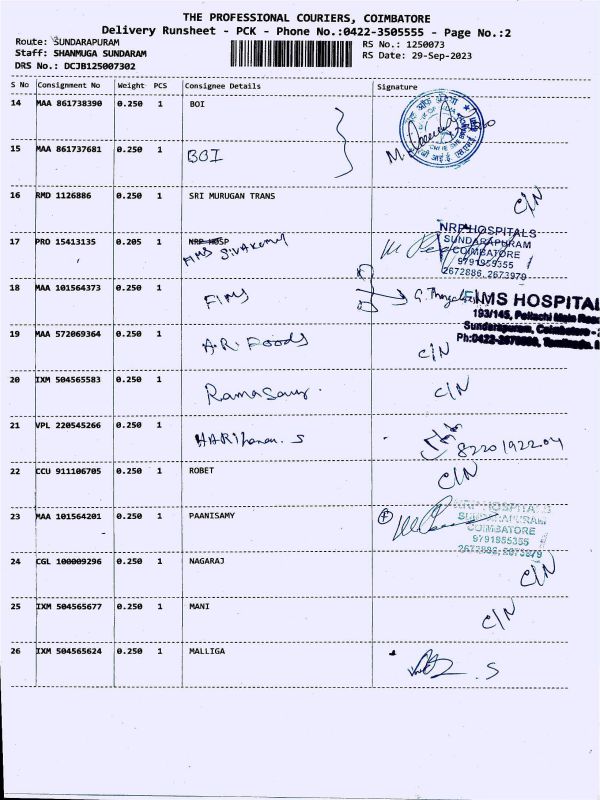 THE PROFESSIONAL COURIERS, COIMBATORE
Delivery Runsheet - PCK - Phone No.:0422-3505555 - Page No.:2
Route: SUNDARAPURAM
Staff: SHANMUGA SUNDARAM
DRS No.: DCJB125007302
RS No.: 1250073
RS Date: 29-Sep-2023
S No Consignment No Weight PCS Consignee Details Signature
14 MAA 861738390 0.250 1 BOI
15 MAA 861737681 0.250 1 BOI
16 RMD 1126886 0.250 1 SRI MURUGAN TRANS C/N
17 PRO 15413135 0.205 1 NRP HOSP
NRP HOSPITALS
SUNDARAPURAM
COIMBATORE
9791955355
2672886, 2673979
18 MAA 101564373 0.250 1 FIMS
FIMS HOSPITAL
193/145, Pollachi Main Road
Sundarapuram, Coimbatore -
19 MAA 572069364 0.250 1 A.R. Foods C/N
20 IXM 504565583 0.250 1 C/N
21 VPL 220545266 0.250 1 HARIharan. S 8220192204
22 CCU 911106705 0.250 1 ROBET C/N
23 MAA 101564201 0.250 1 PAANISAMY
NRP HOSPITALS
SUNDARAPURAM
COIMBATORE
9791955355
2672886, 2673979
24 CGL 100009296 0.250 1 NAGARAJ C/N
25 IXM 504565677 0.250 1 MANI C/N
26 IXM 504565624 0.250 1 MALLIGA